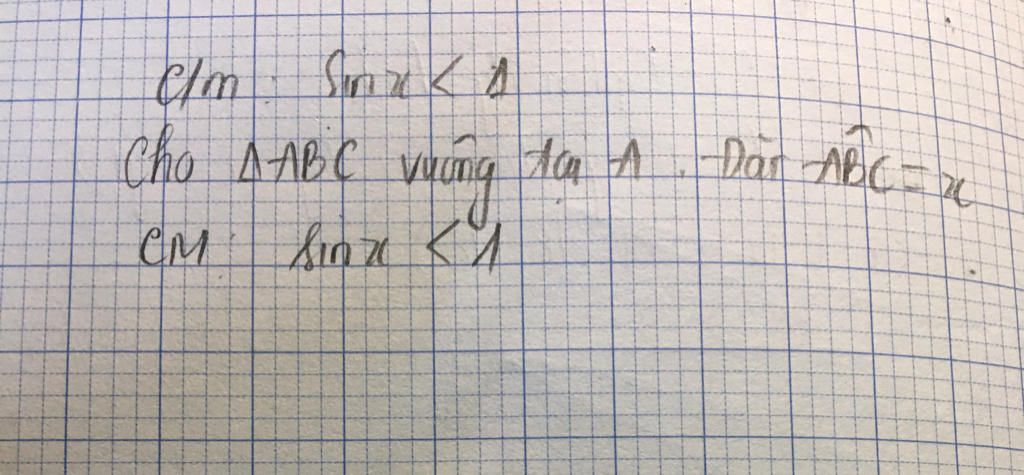 C/m: sin x < 1
Cho ΔABC vuông tại A. Đặt ABC^ = x
CM: sin x < 1